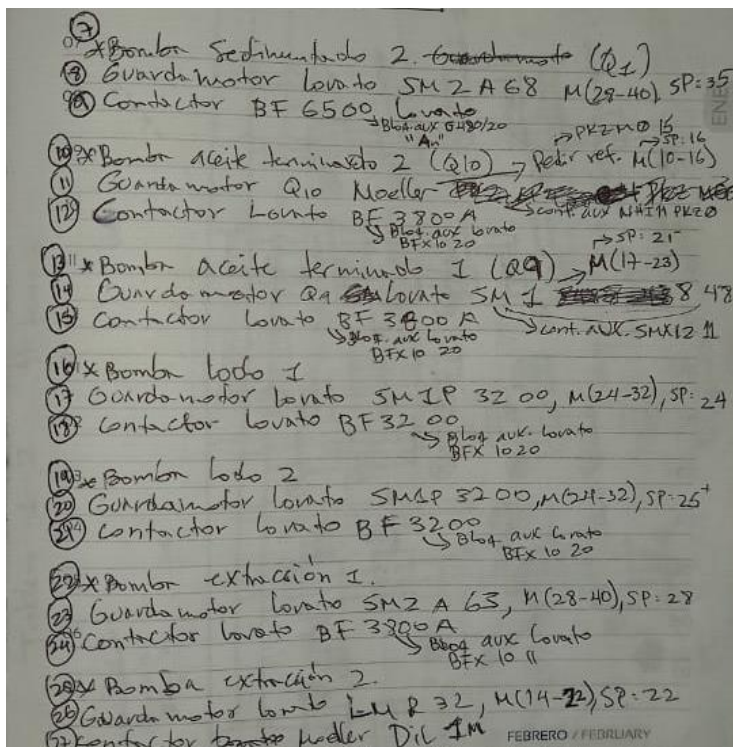 7
* Bomba Sedimentado 2. (Q1)
8 Guardamotor Lovato SM2A68 M(28-40), SP: 35
9 Contactor BF 6500 Lovato
→ Bloq. aux G480/20
"An"
→ PKZM0 16
→ SP: 16
10 * Bomba aceite terminado 2 (Q10) → Pedir ref. M(10-16)
11 Guardamotor Q10 Moeller
→ cont. aux NHI11 PKZ0
12 Contactor Lovato BF 3800A
→ Bloq. aux Lovato
BFX10 20
→ SP: 21
13 * Bomba aceite terminado 1 (Q9) → M(17-23)
14 Guardamotor Q9 Lovato SM1 8 48
15 Contactor Lovato BF 3800 A → cont. aux. SMX12 11
→ Bloq. aux Lovato
BFX10 20
16 * Bomba lodo 1
17 Guardamotor Lovato SM1P 32 00, M(24-32), SP: 24
18 Contactor Lovato BF32 00
→ Bloq aux. Lovato
BFX 1020
19 * Bomba Lodo 2
20 Guardamotor Lovato SM1P 3200, M(24-32), SP: 25+
21 Contactor Lovato BF3200
→ Bloq aux Lovato
BFX 10 20
22 * Bomba extracción 1.
23 Guardamotor Lovato SM2 A 63, M(28-40), SP: 28
24 Contactor Lovato BF 3800A
→ Bloq aux Lovato
BFX 10 11
25 * Bomba extracción 2.
26 Guardamotor Lovato LMR32, M(14-22), SP: 22
27 Contactor Moeller Dil 1M
FEBRERO / FEBRUARY